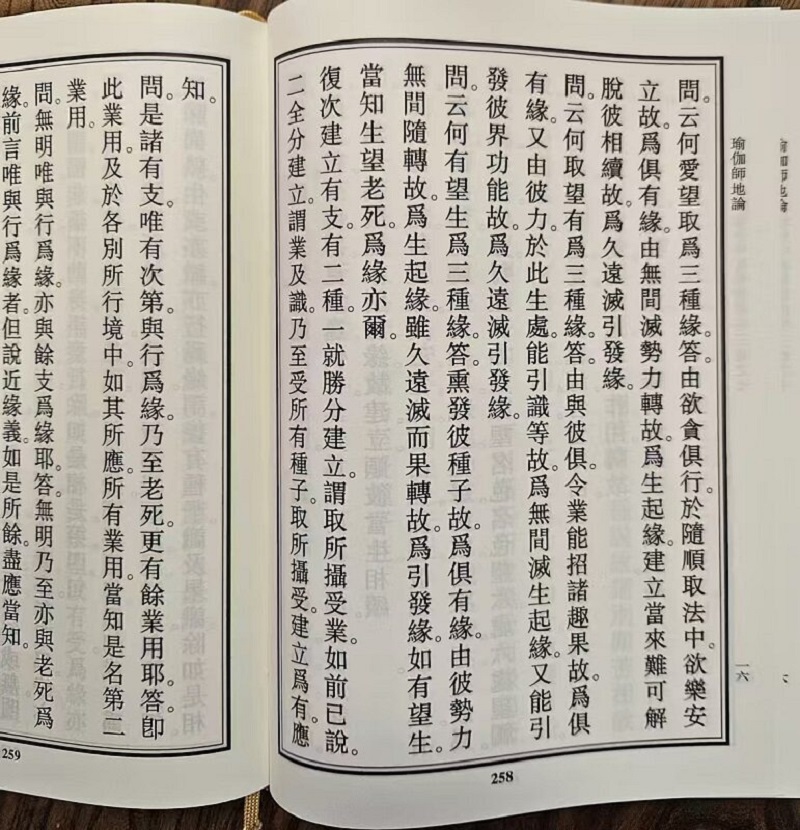 瑜伽師地論
一六
問。云何愛望取爲三種緣。答。由欲貪俱行。於隨順取法中。欲樂安
立故。爲俱有緣。由無間滅勢力轉故。爲生起緣。建立當來難可解
脫彼相續故。爲久遠滅引發緣。
問。云何取望有爲三種緣。答。由與彼俱。令業能招諸趣果故。爲俱
有緣。又由彼力。於此生處。能引識等故。爲無間滅生起緣。又能引
發彼界功能故。爲久遠滅引發緣。
問。云何有望生爲三種緣。答。熏發彼種子故。爲俱有緣。由彼勢力
無間隨轉故。爲生起緣。雖久遠滅而果轉故。爲引發緣。如有望生。
當知生望老死。爲緣亦爾。
復次建立有支。有二種。一就勝分建立。謂取所攝受業。如前已說。
二全分建立。謂業及識。乃至受所有種子。取所攝受。建立爲有。應
258
知。
問。是諸有支。唯有次第與行爲緣。乃至老死。更有餘業用耶。答。卽
此業用。及於各別所行境中。如其所應。所有業用。當知是名第二
業用。
問。無明唯與行爲緣。亦與餘支爲緣耶。答。無明乃至亦與老死爲
緣。前言唯與行爲緣者。但說近緣義。如是所餘。盡應當知。
259